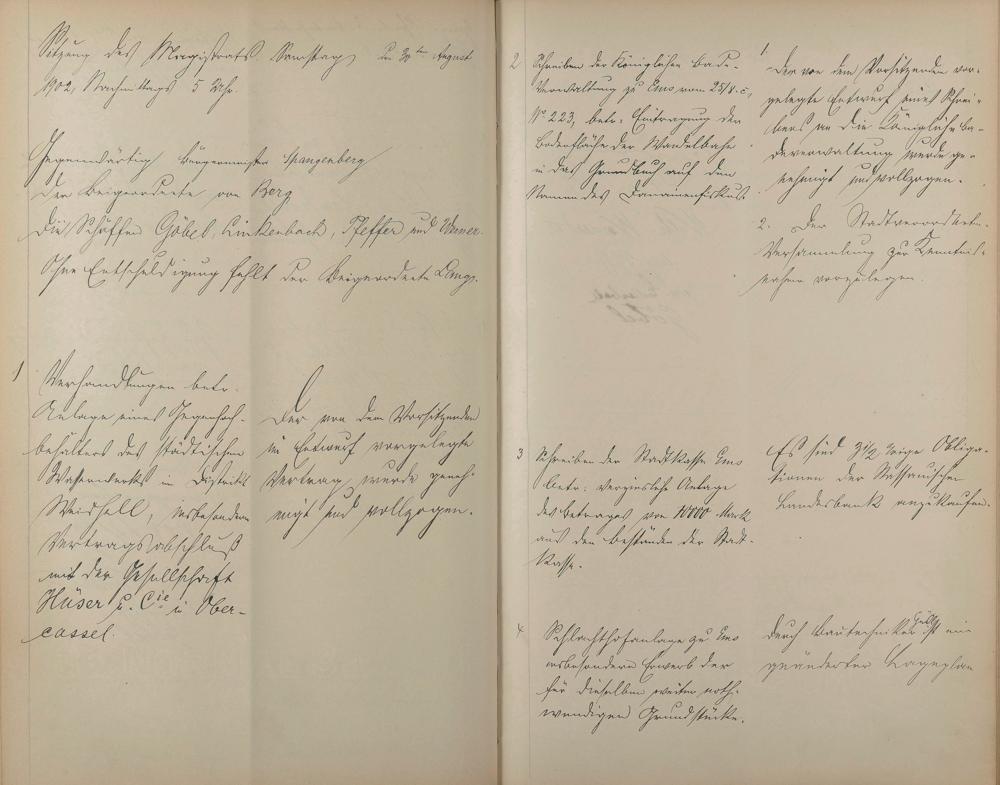 Sitzung des Magistrats Samstag, den 30ten August
1902, Nachmittags 5 Uhr.
Gegenwärtig Bürgermeister Spangenberg
der Beigeordnete von Berg
die Schöffen Göbel, Linkenbach, Pfeffer und Werner.
Ohne Entschuldigung fehlt der Beigeordnete Lange.
1
Verhandlungen betr.
Anlage eines Gegenhoch-
behälters des städtischen
Wasserwerks im Distrikt
Weidhell, insbesondere
Vertragsabschluß
mit der Gesellschaft
Hüser u. Cie in Ober-
cassel.
Der von dem Vorsitzenden
im Entwurf vorgelegte
Vertrag, wurde geneh-
migt und vollzogen.
2
Schreiben der Königlichen Bade-
verwaltung zu Ems vom 25/8. c.,
No 223, betr: Eintragung der
Bodenfläche der Wandelbahn
in das Grundbuch auf den
Namen des Domänenfiskus.
1.
Der von dem Vorsitzenden vor-
gelegte Entwurf eines Schrei-
bens an die Königliche Ba-
deverwaltung wurde ge-
nehmigt und vollzogen.
2. Der Stadtverordneten-
Versammlung zur Kenntnis-
nahme vorzulegen.
3
Schreiben der Stadtkasse Ems
betr: verzinsliche Anlage
des Betrages von 10000 Mark
aus den Beständen der Stadt-
kasse.
Es sind 3½ %ige Obliga-
tionen der Nassauischen
Landesbank anzukaufen.
4
Schlachthofanlage zu Ems
insbesondere Erwerb der
für dieselbe weiter noth-
wendigen Grundstücke.
Durch Bautechniker ist ein
geänderter Lageplan